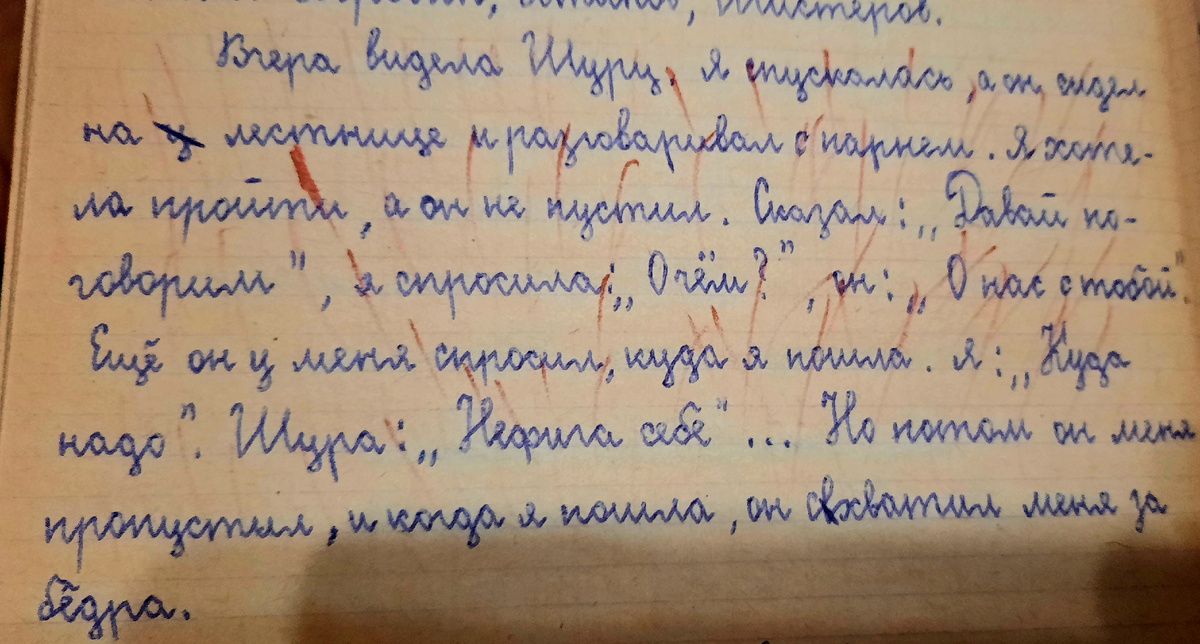 , Шистеров.
Вчера видела Шуру. Я спускалась, а он сидел
на лестнице и разговаривал с парнем. Я хоте-
ла пройти, а он не пустил. Сказал: „Давай по-
говорим", я спросила: „О чём?", он: „О нас с тобой".
Ещё он у меня спросил, куда я пошла. Я: „Куда
надо". Шура: „Нефига себе"... Но потом он меня
пропустил, и когда я пошла, он схватил меня за
бёдра.